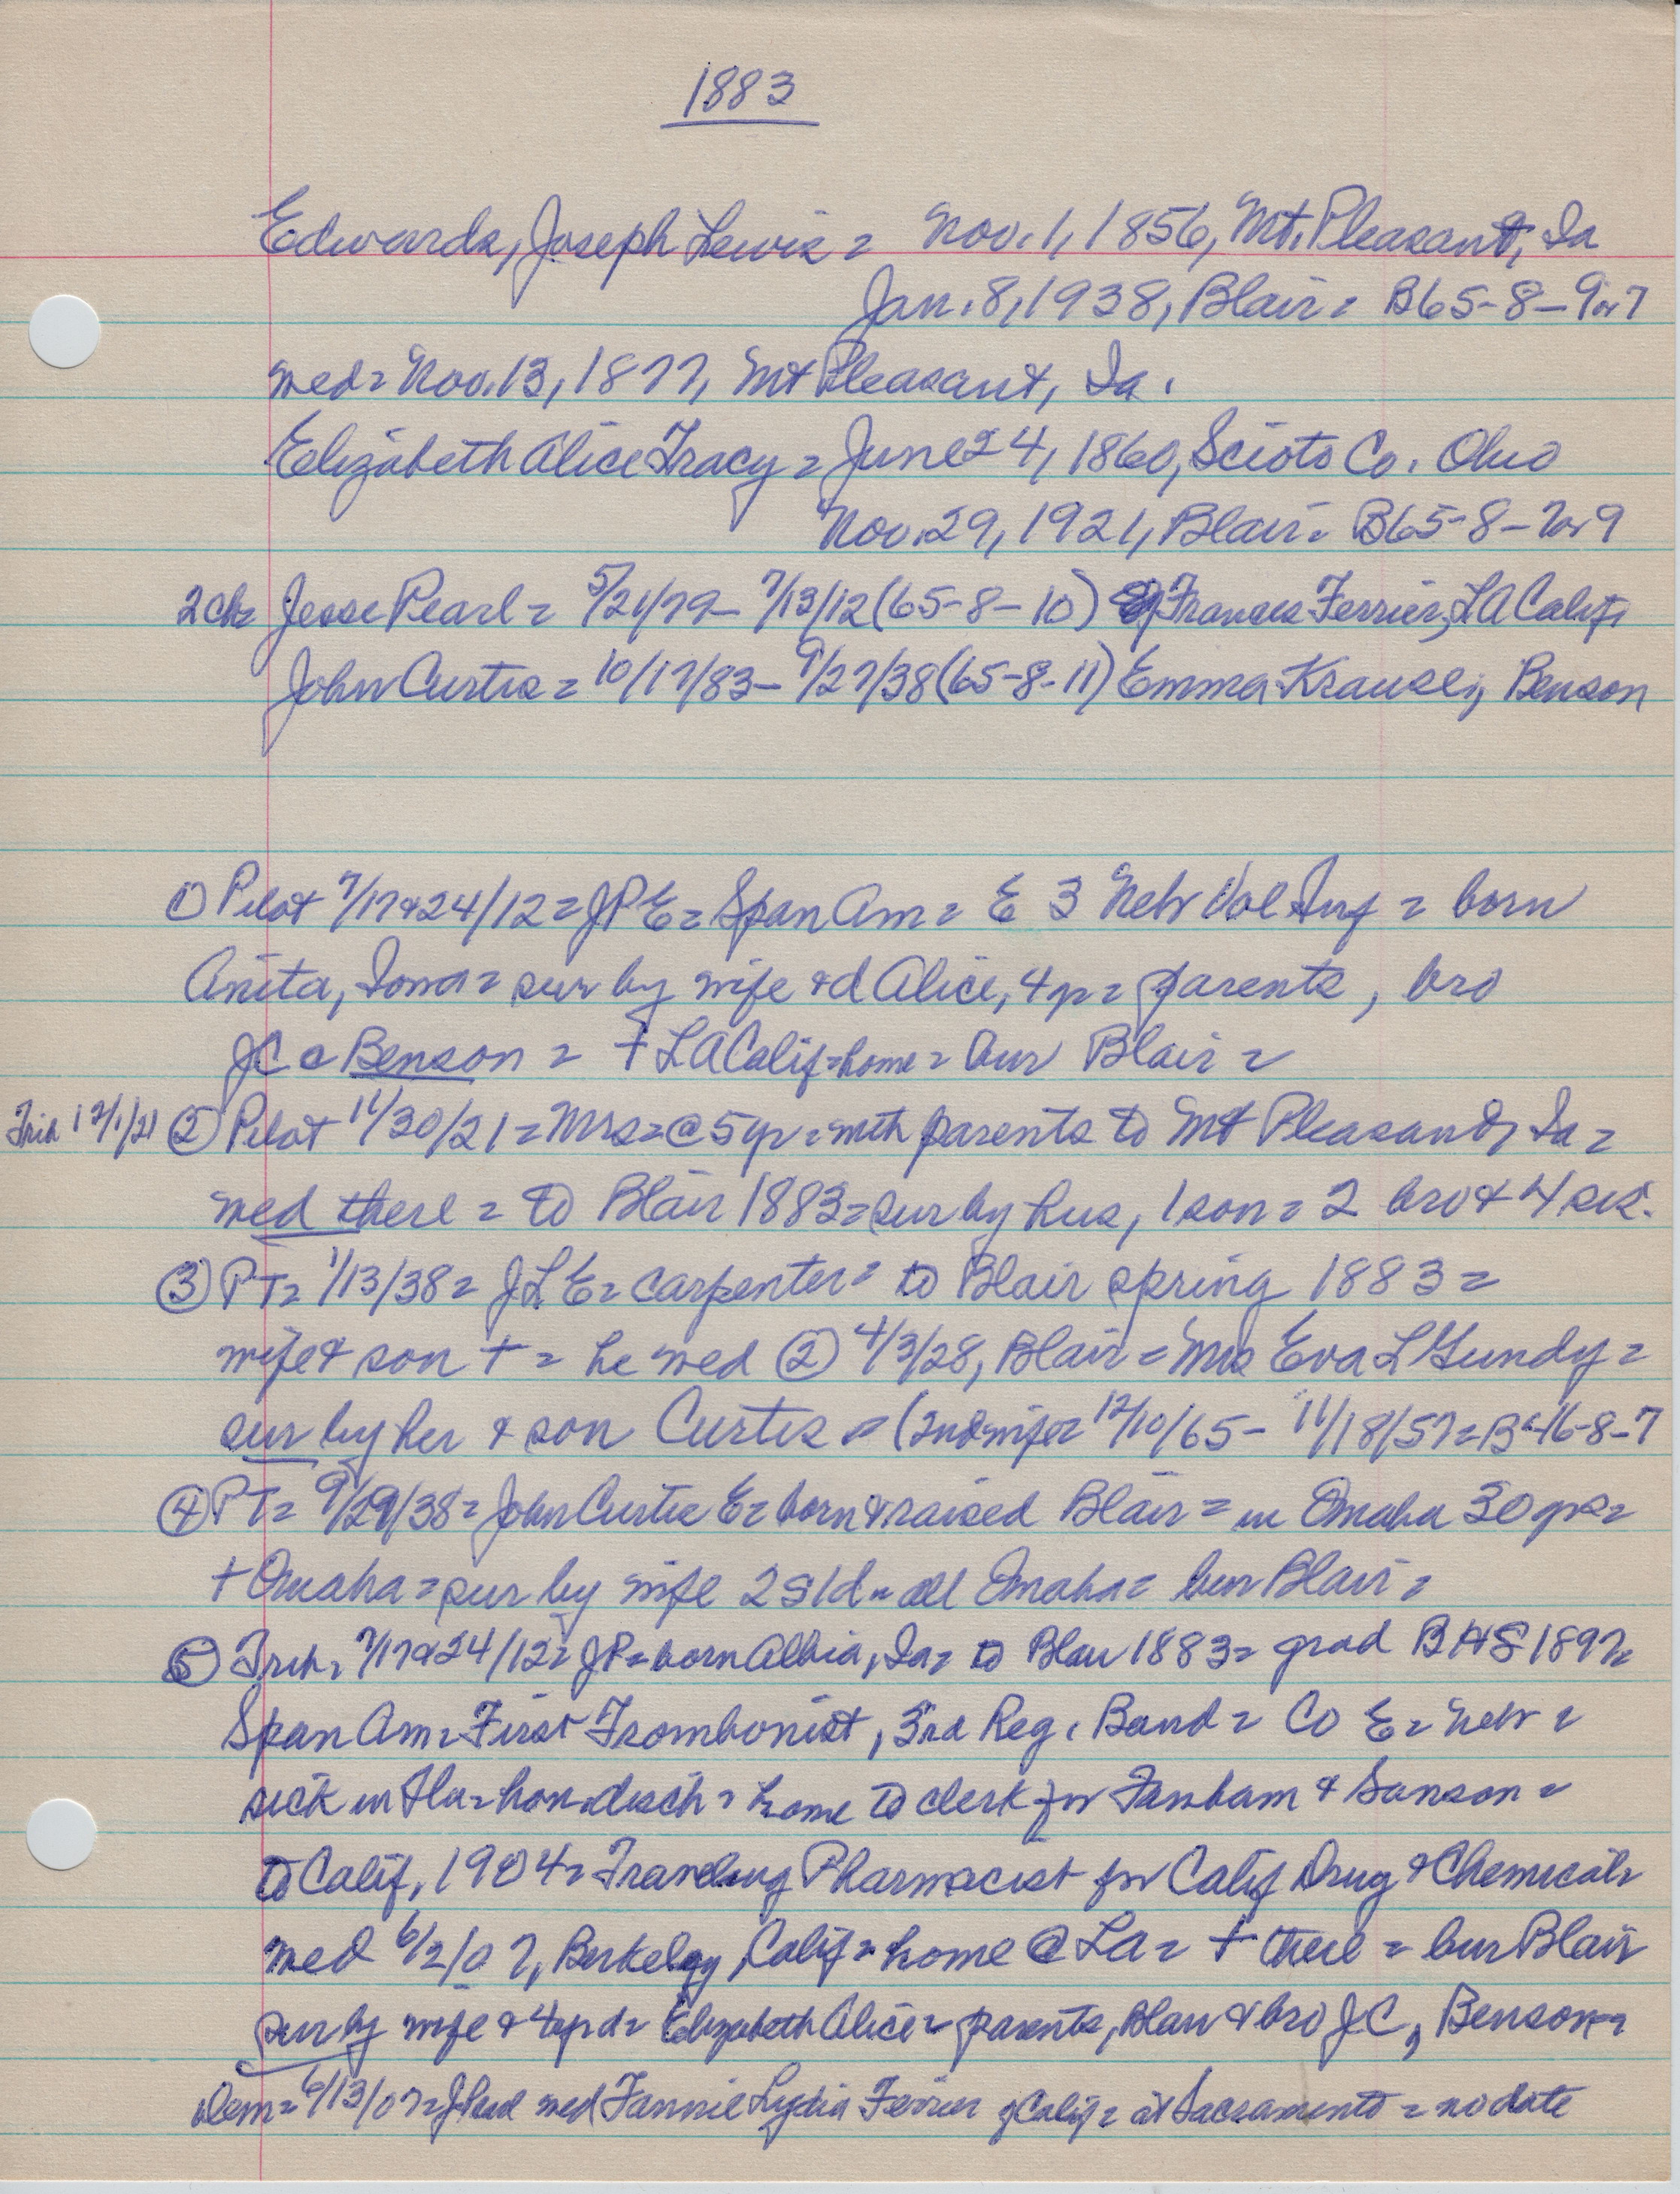 1883
Edwards, Joseph Lewis = Nov. 1, 1856, Mt. Pleasant, Ia
Jan. 8, 1938, Blair = B65-8-9 or 7
wed = Nov. 13, 1877, Mt Pleasant, Ia.
Elizabeth Alice Tracy = June 24, 1860, Scioto Co. Ohio
Nov. 29, 1921, Blair = B65-8-7 or 9
2 ch = Jesse Pearl = 5/21/79 - 7/13/12 (65-8-10) Frances Ferrier, LA Calif,
John Curtis = 10/17/83 - 9/27/38 (65-8-11) Emma Krause, Benson
① Pilot 7/17 & 24/12 = JPE = Span Am = E 3 Nebr Vol Inf = born
Anita, Iowa = sur by wife & d Alice, 4 yr = parents, bro
JC @ Benson = + LA Calif = home = bur Blair =
Trib 12/1/21 ② Pilot 11/30/21 = Mrs = @ 5 yr = with parents to Mt Pleasant, Ia =
wed there = to Blair 1883 = sur by hus, 1 son = 2 bro & 4 sis.
③ PT = 1/13/38 = JLE = carpenter = to Blair spring 1883 =
wife & son + = he wed ② 4/3/28, Blair = Mrs Eva L Gundy =
sur by her & son Curtis = (2nd wife = 12/10/65 - 11/18/57 = B46-8-7
④ PT = 9/29/38 = John Curtis E = born & raised Blair = in Omaha 30 yrs =
+ Omaha = sur by wife 2s 1d = all Omaha = bur Blair =
⑤ Trib = 7/17 & 24/12 = JP = born Albia, Ia = to Blair 1883 = grad BHS 1897 =
Span Am = First Trombonist, 3rd Reg. Band = Co E = Nebr =
sick in Fla = hon. disch = home to clerk for Farnham & Sanson =
to Calif, 1904 = Traveling Pharmacist for Calif Drug & Chemical =
wed 6/2/07, Berkeley, Calif = home @ LA = + there = bur Blair
sur by wife & 4 yr d = Elizabeth Alice = parents, Blair & bro JC, Benson =
Dem = 6/13/07 = J Pearl wed Fannie Lydia Ferrier of Calif = at Sacramento = no date